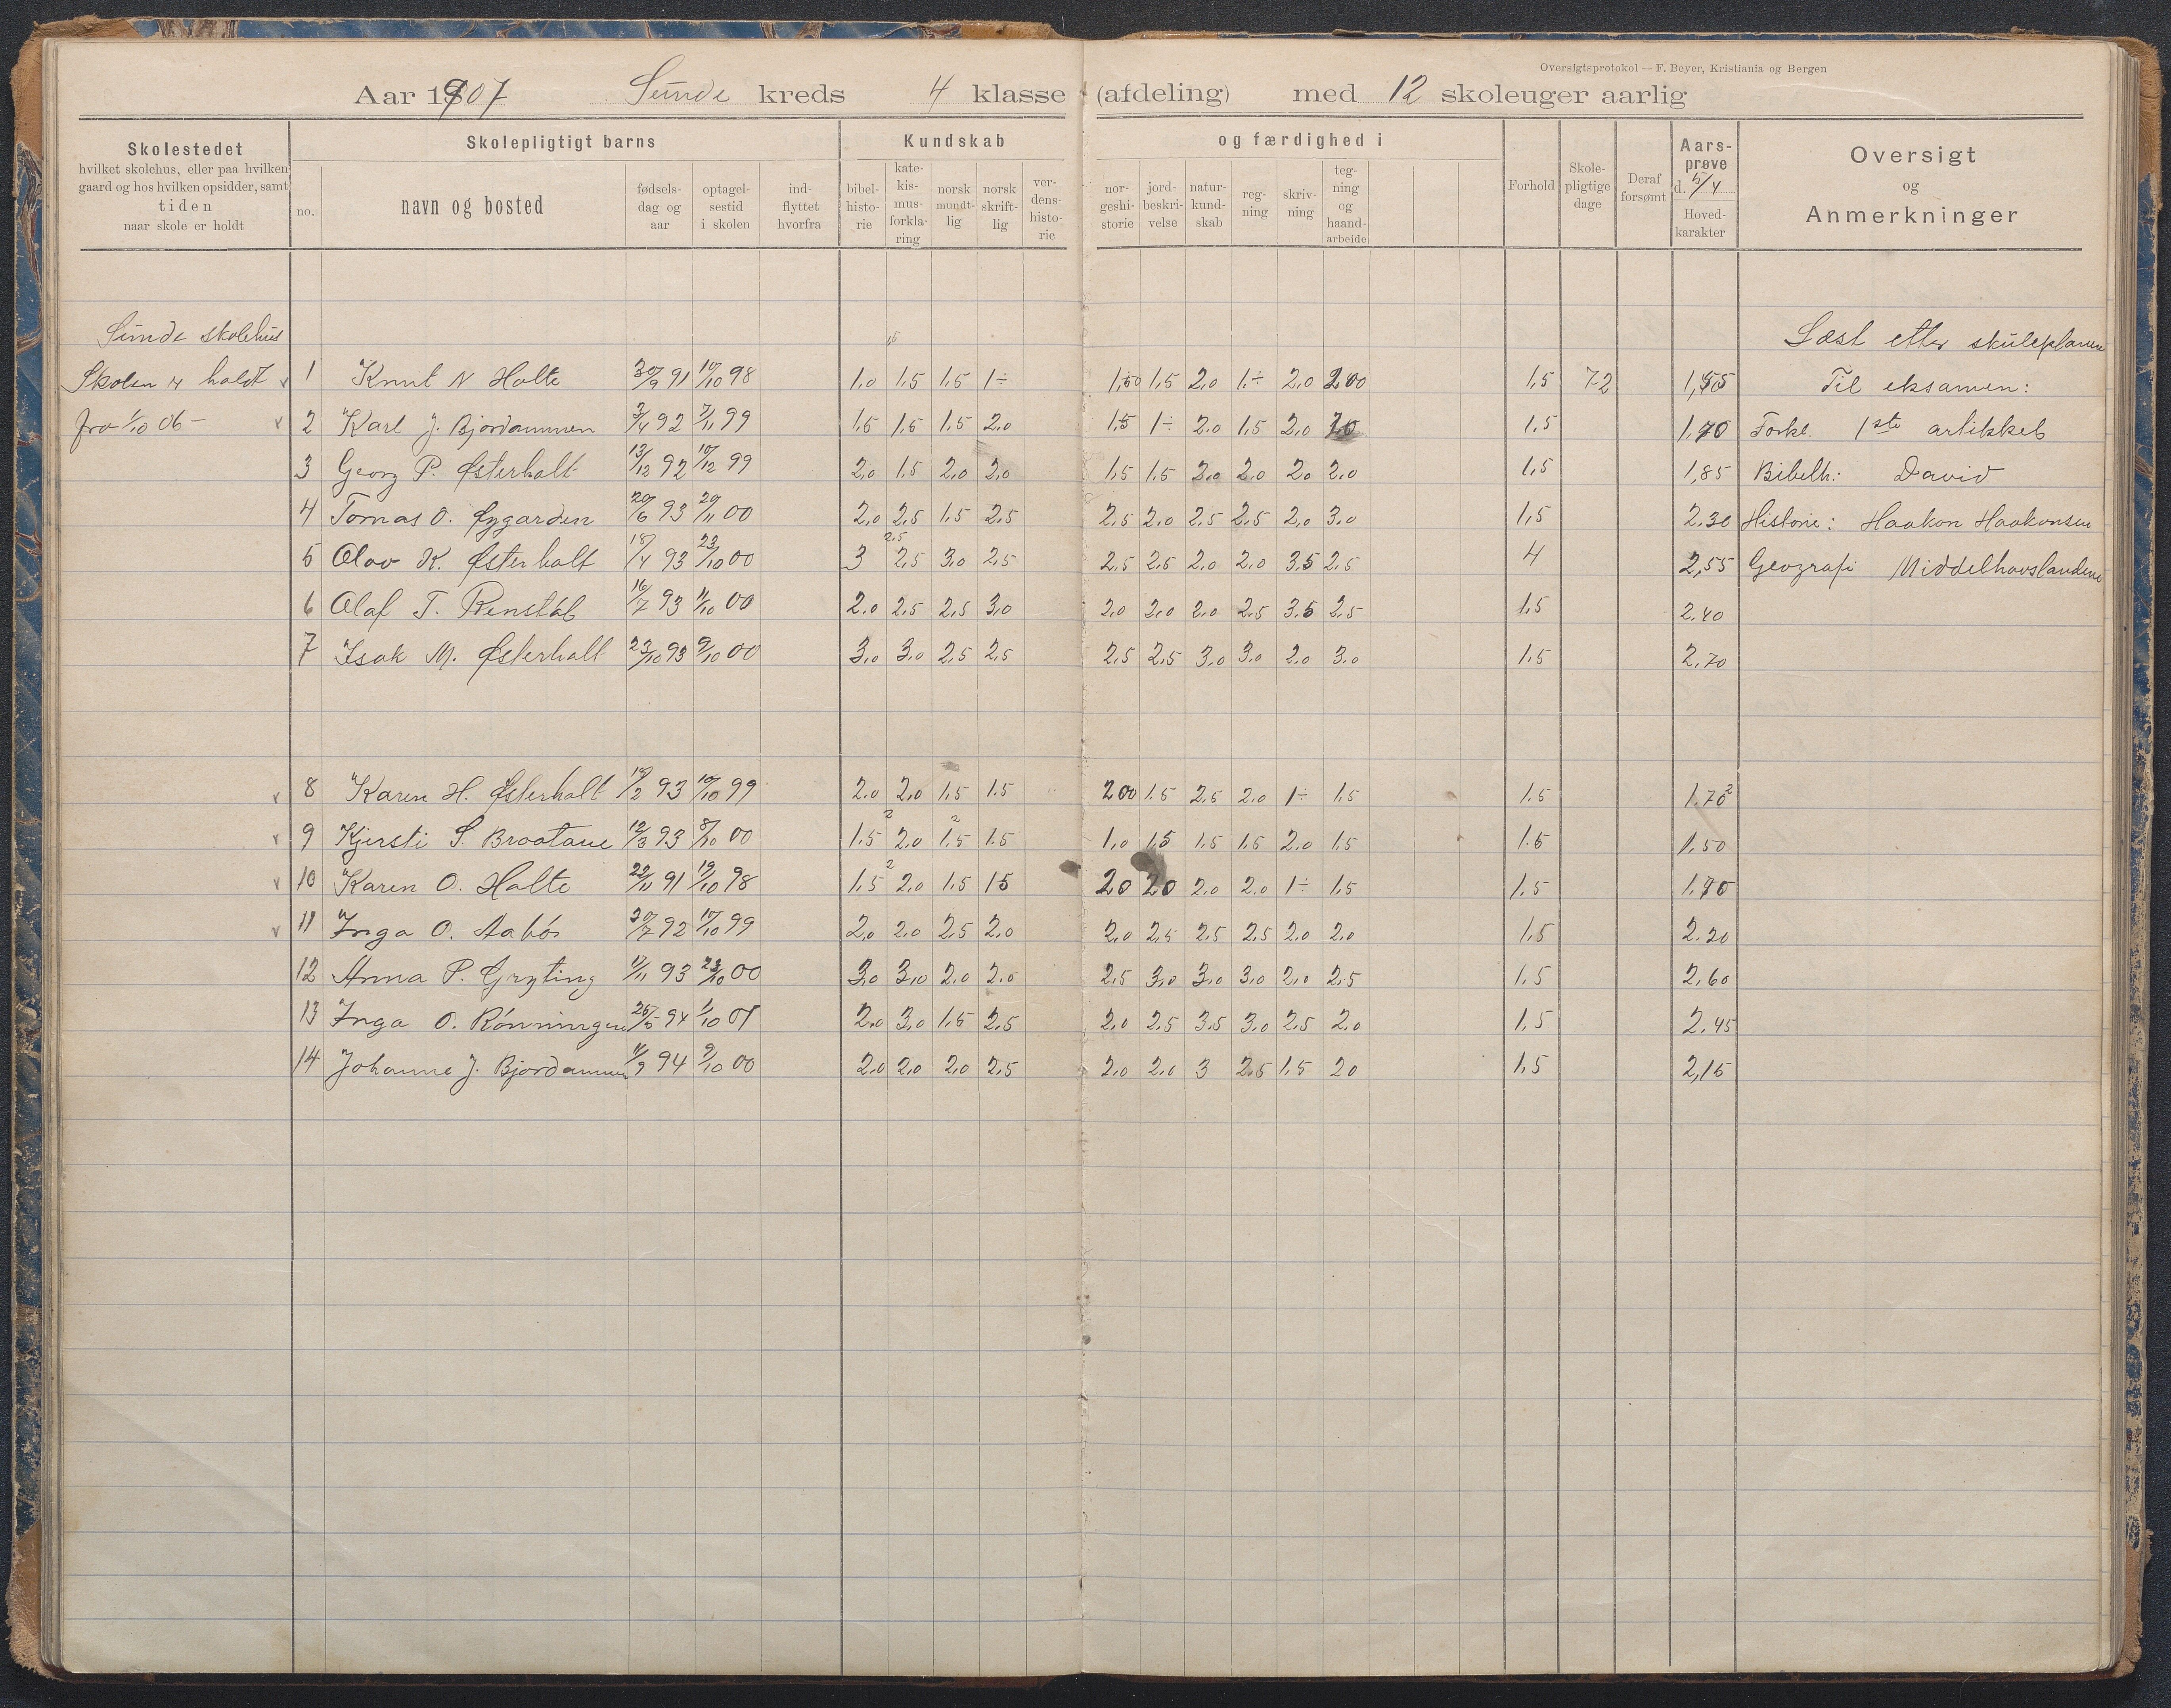 Oversigtsprotokol — F. Beyer, Kristiania og Bergen
Aar 1907 Sunde kreds 4 klasse (afdeling) med 12 skoleuger aarlig
Skolestedet
hvilket skolehus, eller paa hvilken
gaard og hos hvilken opsidder, samt
tiden
naar skole er holdt
Skolepligtigt barns
no.
navn og bosted
fødsels-
dag og
aar
optagel-
sestid
i skolen
ind-
flyttet
hvorfra
Kundskab
bibel-
histo-
rie
kate-
kis-
mus-
forkla-
ring
norsk
mundt-
lig
norsk
skrift-
lig
ver-
dens-
histo-
rie
og færdighed i
nor-
geshi-
storie
jord-
beskri-
velse
natur-
kund-
skab
reg-
ning
skriv-
ning
teg-
ning
og
haand-
arbeide
Forhold
Skole-
pligtige
dage
Deraf
forsømt
Aars-
prøve
d. 5/4
Hoved-
karakter
Oversigt
og
Anmerkninger
Sunde skolehus
Læst etter skuleplanen
Skolen er holdt 1 Knut N Holte 30/9 91 10/10 98 1,0 1,5 1,5 1÷ 1,5 2,0 1÷ 2,0 1,5 72 Til eksamen:
fra 1/10 06 — 2 Karl J. Bjordammen 3/4 92 7/11 99 1,5 1,5 1,5 2,0 1,5 1÷ 2,0 1,5 2,0 1,5 1,70 Forkl. 1ste artikkel
3 Georg P. Østerholt 13/12 92 10/12 99 2,0 1,5 2,0 2,0 1,5 1,5 2,0 2,0 2,0 2,0 1,5 1,85 Bibelh: David
4 Tomas O. Øygarden 20/6 93 20/11 00 2,0 2,5 1,5 2,5 2,5 2,0 2,5 2,5 2,0 3,0 1,5 2,30 Historie: Haakon Haakonsen
5 Olav K. Østerholt 18/4 93 23/10 00 3 2,5 3,0 2,5 2,5 2,5 2,0 2,0 3,5 2,5 4 2,55 Geografi Middelhavslandene
6 Olaf T. 16/7 93 11/10 00 2,0 2,5 2,5 3,0 2,0 2,0 2,0 2,5 3,5 2,5 1,5 2,40
7 Isak M. Østerholt 23/10 93 9/10 00 3,0 3,0 2,5 2,5 2,5 2,5 3,0 3,0 2,0 3,0 1,5 2,70
8 Karen H. Østerholt 19/2 93 10/10 99 2,0 2,0 1,5 1,5 200 1,5 2,5 2,0 1÷ 1,5 1,5 1,70
9 Kjersti S. Braatane 12/3 93 8/10 00 1,5 2,0 1,5 1,5 1,0 1,5 1,5 1,5 2,0 1,5 1,5 1,50
10 Karen O. Holte 22/11 91 19/10 98 1,5 2,0 1,5 15 20 20 2,0 2,0 1÷ 1,5 1,5 1,70
11 Inga O. Aabøs 20/7 92 17/10 99 2,0 2,0 2,5 2,0 2,0 2,5 2,5 2,5 2,0 2,0 1,5 2,20
12 Anna P. Gryting 11/11 93 23/10 00 3,0 3,0 2,0 2,0 2,5 3,0 3,0 3,0 2,0 2,5 1,5 2,60
13 Inga O. Rønningen 26/5 94 1/10 01 2,0 3,0 1,5 2,5 2,0 2,5 3,5 3,0 2,5 2,0 1,5 2,45
14 Johanne J. Bjordammen 11/9 94 9/10 00 2,0 2,0 2,0 2,5 2,0 2,0 3 2,5 1,5 20 1,5 2,15